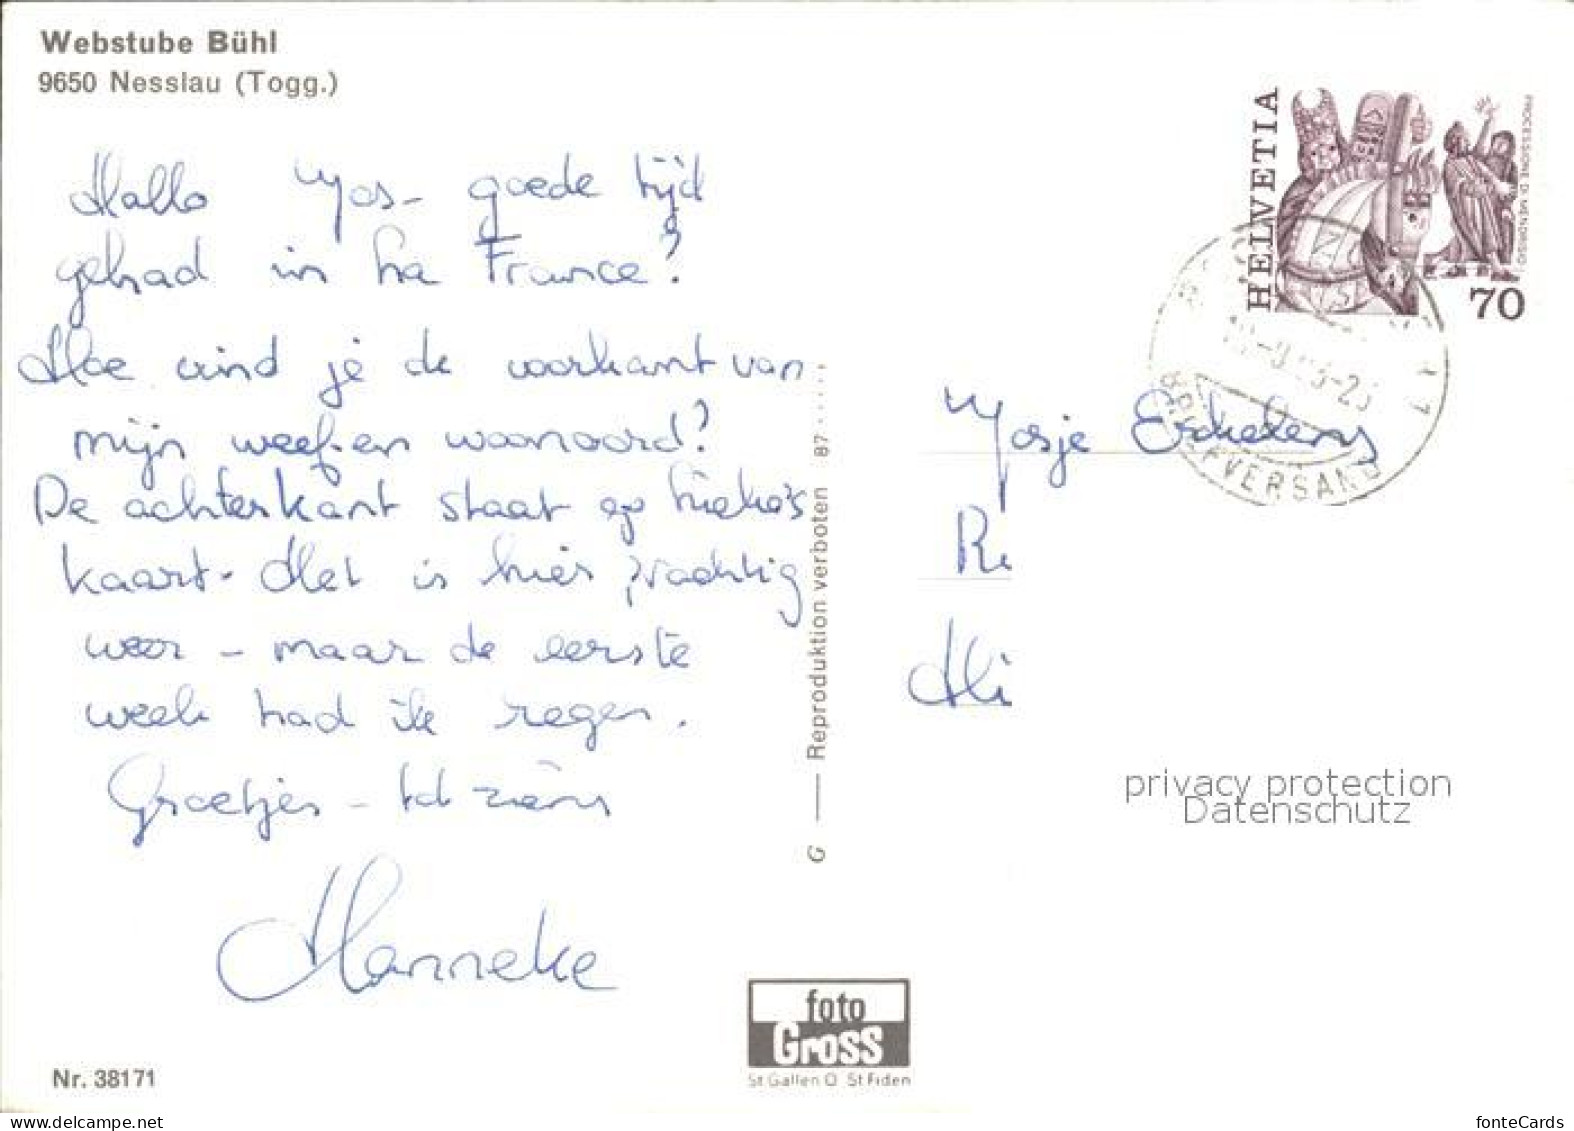 Webstube Bühl
9650 Nesslau (Togg.)
Hallo Yos- goede tijd
gehad in ha France?
Hoe vind je de voorkant van
mijn weef-en woonoord?
De achterkant staat op Nieko's
kaart. Het is hier prachtig
weer - maar de eerste
week had ik regen.
Groetjes - tot ziens
Hanneke
Nr. 38171
G — Reproduktion verboten 87.....
foto
Gross
St Gallen O St Fiden
HELVETIA
PROCESSIONE DI MENDRISIO
70
BRIEFVERSAND
Yosje
Ri
Hi
privacy protection
Datenschutz
delcampe.net
fonteCards